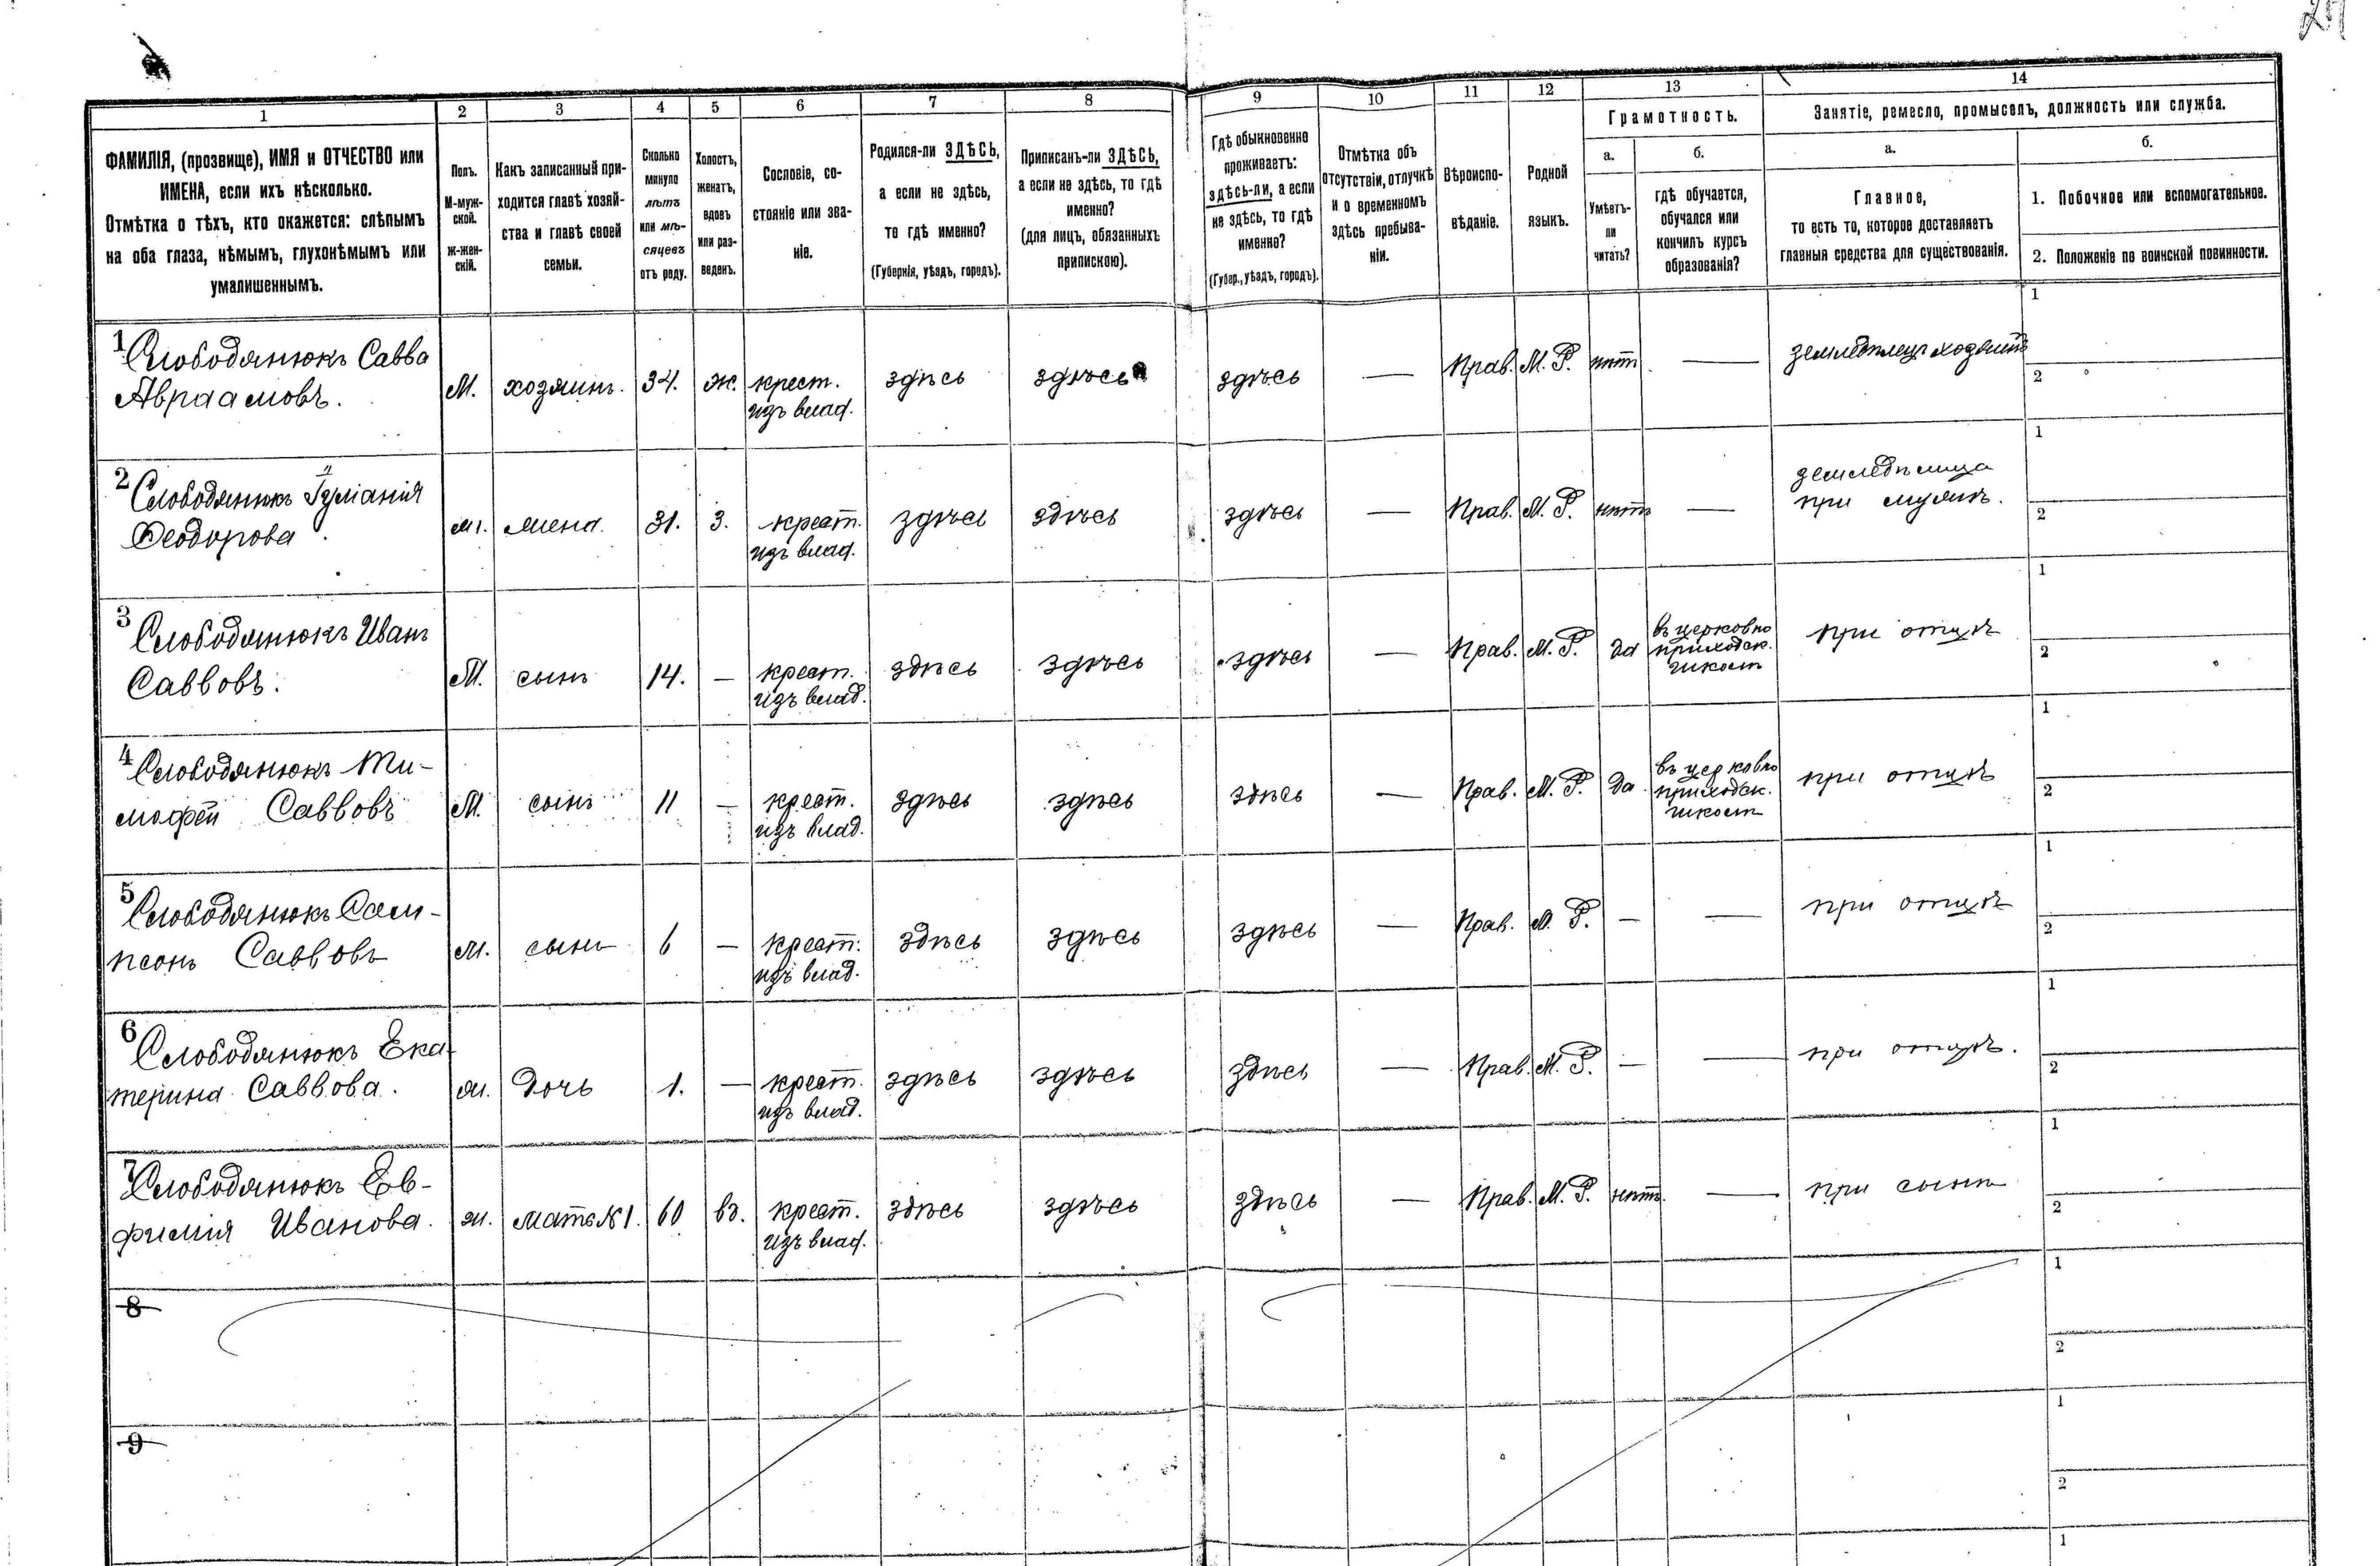 1 2 3 4 5 6 7 8 9 10 11 12 13 14
ФАМИЛІЯ, (прозвище), ИМЯ и ОТЧЕСТВО или
ИМЕНА, если ихъ нѣсколько.
Отмѣтка о тѣхъ, кто окажется: слѣпымъ
на оба глаза, нѣмымъ, глухонѣмымъ или
умалишеннымъ.
Полъ.
М-муж-
ской.
Ж-жен-
скій.
Какъ записанный при-
ходится главѣ хозяй-
ства и главѣ своей
семьи.
Сколько
минуло
лѣтъ
или мѣ-
сяцевъ
отъ роду.
Холостъ,
женатъ,
вдовъ
или раз-
веденъ.
Сословіе, со-
стояніе или зва-
ніе.
Родился-ли ЗДѢСЬ,
а если не здѣсь,
то гдѣ именно?
(Губернія, уѣздъ, городъ).
Приписанъ-ли ЗДѢСЬ,
а если не здѣсь, то гдѣ
именно?
(для лицъ, обязанныхъ
припискою).
Гдѣ обыкновенно
проживаетъ:
здѣсь-ли, а если
не здѣсь, то гдѣ
именно?
(Губер., уѣздъ, городъ).
Отмѣтка объ
отсутствіи, отлучкѣ
и о временномъ
здѣсь пребыва-
ніи.
Вѣроиспо-
вѣданіе.
Родной
языкъ.
Грамотность.
а.
Умѣетъ-
ли
читать?
б.
гдѣ обучается,
обучался или
кончилъ курсъ
образованія?
Занятіе, ремесло, промыселъ, должность или служба.
а.
Главное,
то есть то, которое доставляетъ
главныя средства для существованія.
б.
1. Побочное или вспомогательное.
2. Положеніе по воинской повинности.
1 Слободянюкъ Савва
Авраамовъ.
М. хозяинъ. 34. ж. крест.
изъ влад.
здѣсь здѣсь здѣсь — Прав. М. Р. нѣтъ — земледѣлецъ хозяинъ
1
2
2 Слободянюкъ Іуліанія
Ѳеодорова.
ж. жена. 31. з. крест.
изъ влад.
здѣсь здѣсь здѣсь — Прав. М. Р. нѣтъ — земледѣлица
при мужѣ.
1
2
3 Слободянюкъ Иванъ
Саввовъ.
М. сынъ 14. — крест.
изъ влад.
здѣсь здѣсь здѣсь — Прав. М. Р. да въ церковно
приходск.
школѣ
при отцѣ
1
2
4 Слободянюкъ Ти-
мофей Саввовъ
М. сынъ 11 — крест.
изъ влад.
здѣсь здѣсь здѣсь — Прав. М. Р. да въ церковно
приходск.
школѣ
при отцѣ
1
2
5 Слободянюкъ Сам-
псонъ Саввовъ
М. сынъ 6 — крест.
изъ влад.
здѣсь здѣсь здѣсь — Прав. М. Р. — — при отцѣ
1
2
6 Слободянюкъ Ека-
терина Саввова.
ж. дочь 1. — крест.
изъ влад.
здѣсь здѣсь здѣсь — Прав. М. Р. — — при отцѣ.
1
2
7 Слободянюкъ Ев-
фимія Иванова.
ж. мать №1. 60 вд. крест.
изъ влад.
здѣсь здѣсь здѣсь — Прав. М. Р. нѣтъ. — при сынѣ
1
2
8
1
2
9
1
2
1